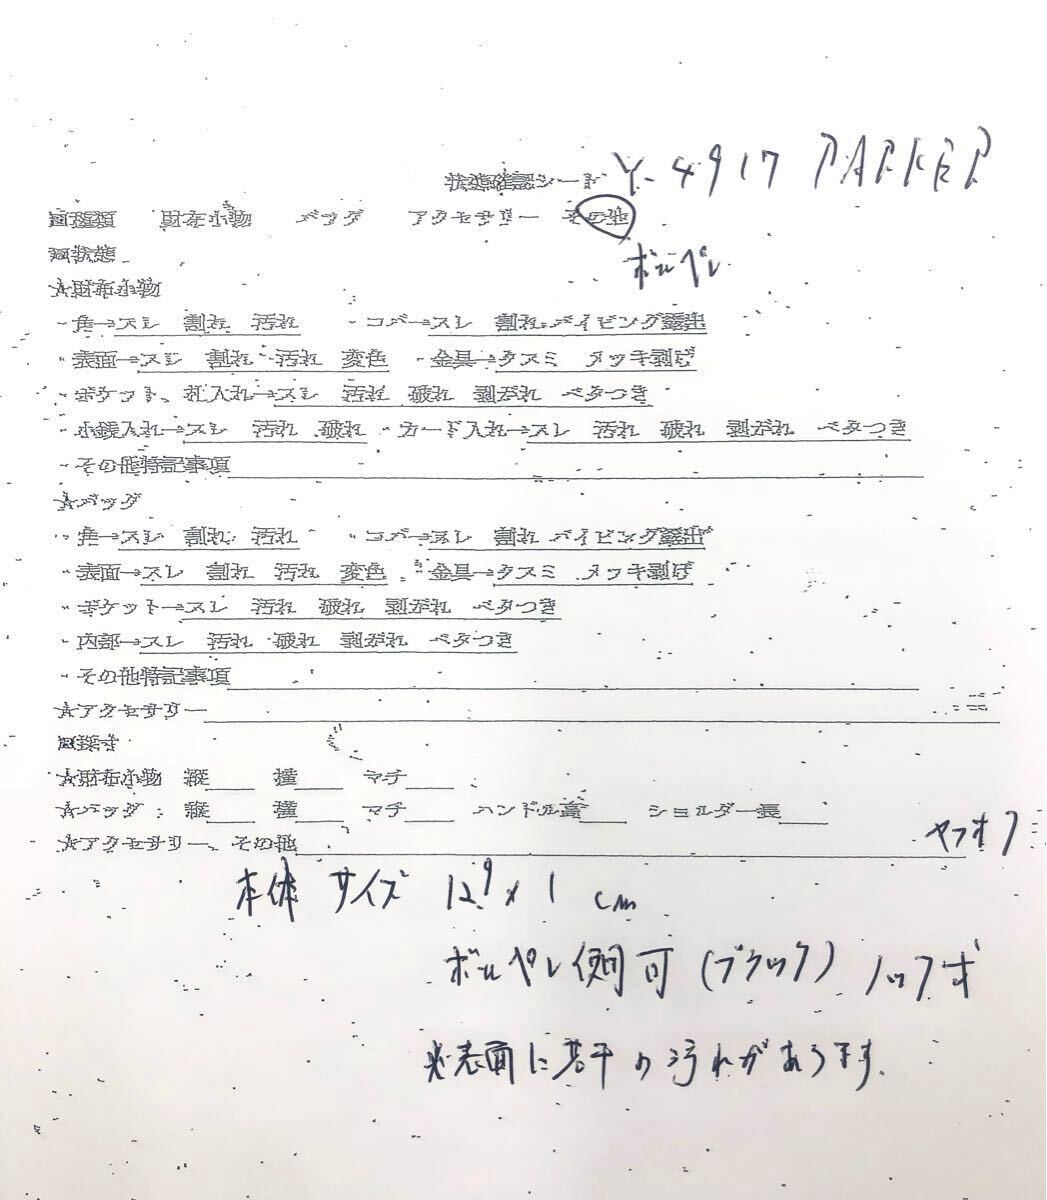 状態確認シード Y-4917 PARKER
回種類 財布小物 バッグ アクセサリー その他
ボールペン
回状態
★財布小物
・角→スレ 割れ 汚れ ・コバ→スレ 割れ パイピング露出
・表面→スレ 割れ 汚れ 変色 ・金具→クスミ メッキ剥げ
・ポケット、札入れ→スレ 汚れ 破れ 剥がれ ベタつき
・小銭入れ→スレ 汚れ 破れ ・カード入れ→スレ 汚れ 破れ 剥がれ ベタつき
・その他特記事項
★バッグ
・角→スレ 割れ 汚れ ・コバ→スレ 割れ パイピング露出
・表面→スレ 割れ 汚れ 変色 ・金具→クスミ メッキ剥げ
・ポケット→スレ 汚れ 破れ 剥がれ ベタつき
・内部→スレ 汚れ 破れ 剥がれ ベタつき
・その他特記事項
★アクセサリー
回採寸
★財布小物 縦 横 マチ
★バッグ: 縦 横 マチ ハンドル高 ショルダー長
★アクセサリー、その他
ヤフオク
本体 サイズ 12.9×1 cm
ボールペン側 可 (ブラック) ノック式
※表面に若干の汚れがあります。